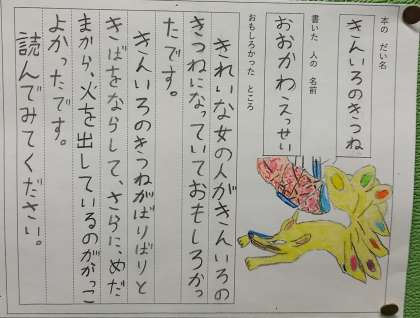 本の だい名
きんいろのきつね
書いた 人の 名前
おおかわえっせい
おもしろかった ところ
きれいな女の人がきんいろの
きつねになっていておもしろかっ
たです。
きんいろのきつねがばりばりと
きばをならして、さらに、めだ
まから、火を出しているのがかっこ
よかったです。
読んでみてください。